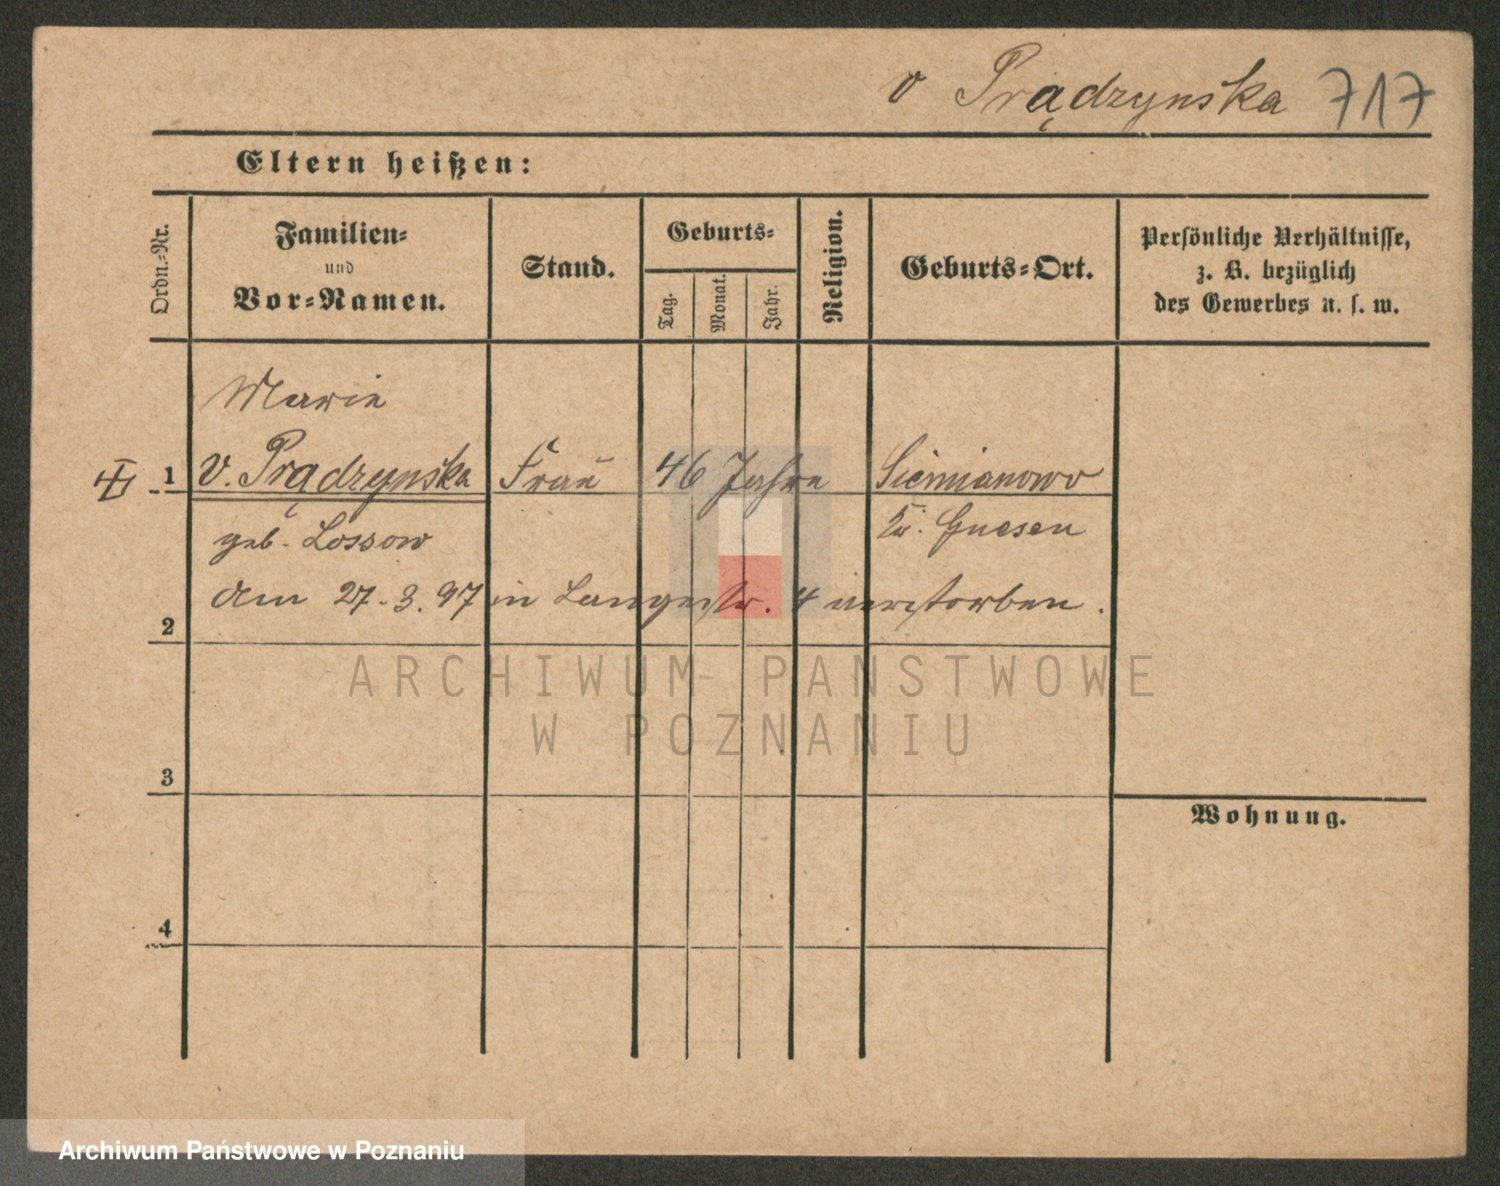 v Prądzynska 717
Eltern heißen:
Ordn.-Nr.
Familien-
und
Vor-Namen.
Stand.
Geburts-
Tag.
Monat.
Jahr.
Religion.
Geburts-Ort.
Persönliche Verhältnisse,
z. B. bezüglich
des Gewerbes u. s. w.
Marie
1 v. Prądzynska Frau 46 Jahre Siemianowo
geb. Lossow Kr. Gnesen
am 27.3.97 in Langestr. 4 verstorben.
2
ARCHIWUM PAŃSTWOWE
W POZNANIU
3
Wohnung.
4
Archiwum Państwowe w Poznaniu